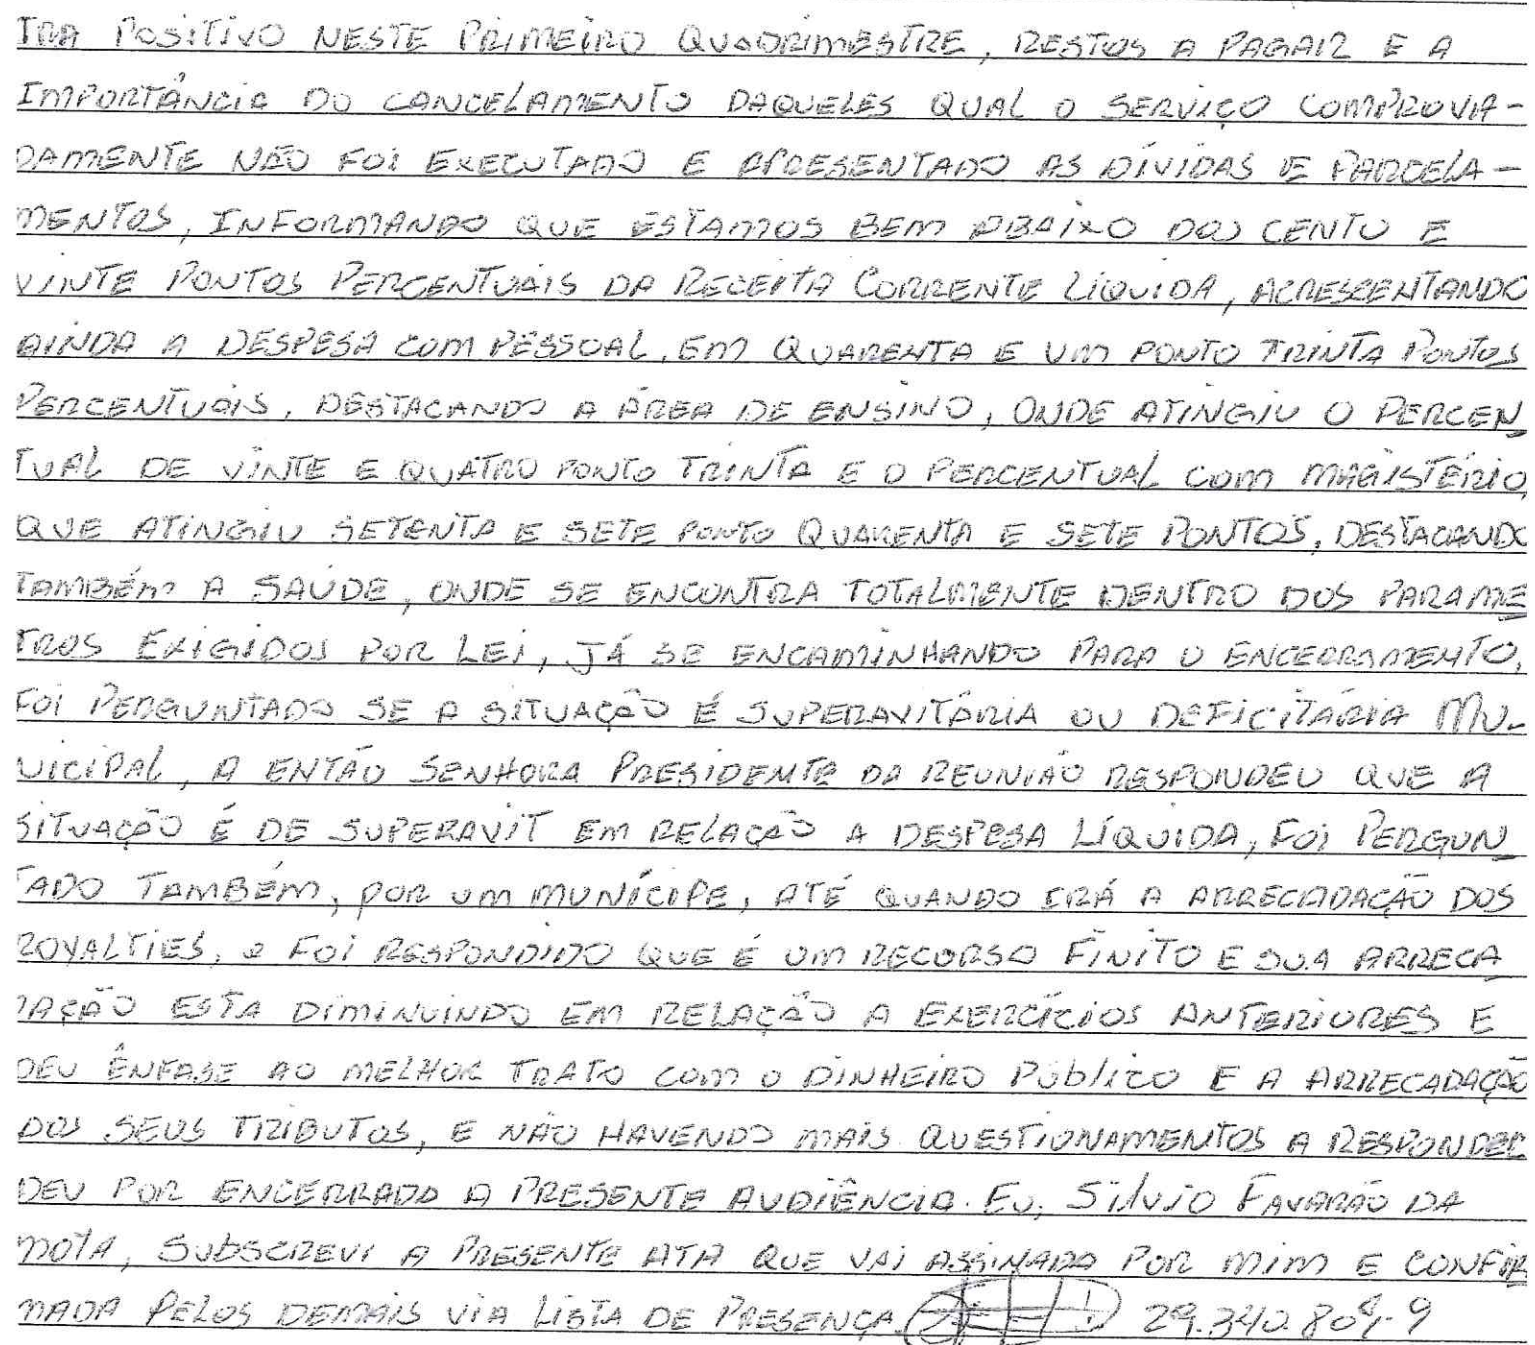 TRA POSITIVO NESTE PRIMEIRO QUADRIMESTRE, RESTOS A PAGAR E A
IMPORTÂNCIA DO CANCELAMENTO DAQUELES QUAL O SERVIÇO COMPROVA-
DAMENTE NÃO FOI EXECUTADO E APRESENTADO AS DÍVIDAS E PARCELA-
MENTOS, INFORMANDO QUE ESTAMOS BEM ABAIXO DOS CENTO E
VINTE PONTOS PERCENTUAIS DA RECEITA CORRENTE LÍQUIDA, ACRESCENTANDO
AINDA A DESPESA COM PESSOAL, EM QUARENTA E UM PONTO TRINTA PONTOS
PERCENTUAIS, DESTACANDO A ÁREA DE ENSINO, ONDE ATINGIU O PERCEN
TUAL DE VINTE E QUATRO PONTO TRINTA E O PERCENTUAL COM MAGISTÉRIO,
QUE ATINGIU SETENTA E SETE PONTO QUARENTA E SETE PONTOS, DESTACANDO
TAMBÉM A SAÚDE, ONDE SE ENCONTRA TOTALMENTE DENTRO DOS PARAME
TROS EXIGIDOS POR LEI, JÁ SE ENCAMINHANDO PARA O ENCERRAMENTO,
FOI PERGUNTADO SE A SITUAÇÃO É SUPERAVITÁRIA OU DEFICITÁRIA MU-
NICIPAL, A ENTÃO SENHORA PRESIDENTE DA REUNIÃO RESPONDEU QUE A
SITUAÇÃO É DE SUPERAVIT EM RELAÇÃO A DESPESA LÍQUIDA, FOI PERGUN
TADO TAMBÉM, POR UM MUNÍCIPE, ATÉ QUANDO IRÁ A ARRECADAÇÃO DOS
ROYALTIES, e FOI RESPONDIDO QUE É UM RECURSO FINITO E SUA ARRECA
DAÇÃO ESTA DIMINUINDO EM RELAÇÃO A EXERCÍCIOS ANTERIORES E
DEU ÊNFASE AO MELHOR TRATO COM O DINHEIRO PÚBLICO E A ARRECADAÇÃO
DOS SEUS TRIBUTOS, E NÃO HAVENDO MAIS QUESTIONAMENTOS A RESPONDER
DEU POR ENCERRADO A PRESENTE AUDIÊNCIA. EU, SILVIO FAVARÃO DA
MOTA, SUBSCREVI A PRESENTE ATA QUE VAI ASSINADA POR MIM E CONFIR
MADA PELOS DEMAIS VIA LISTA DE PRESENÇA. 29.340.809-9